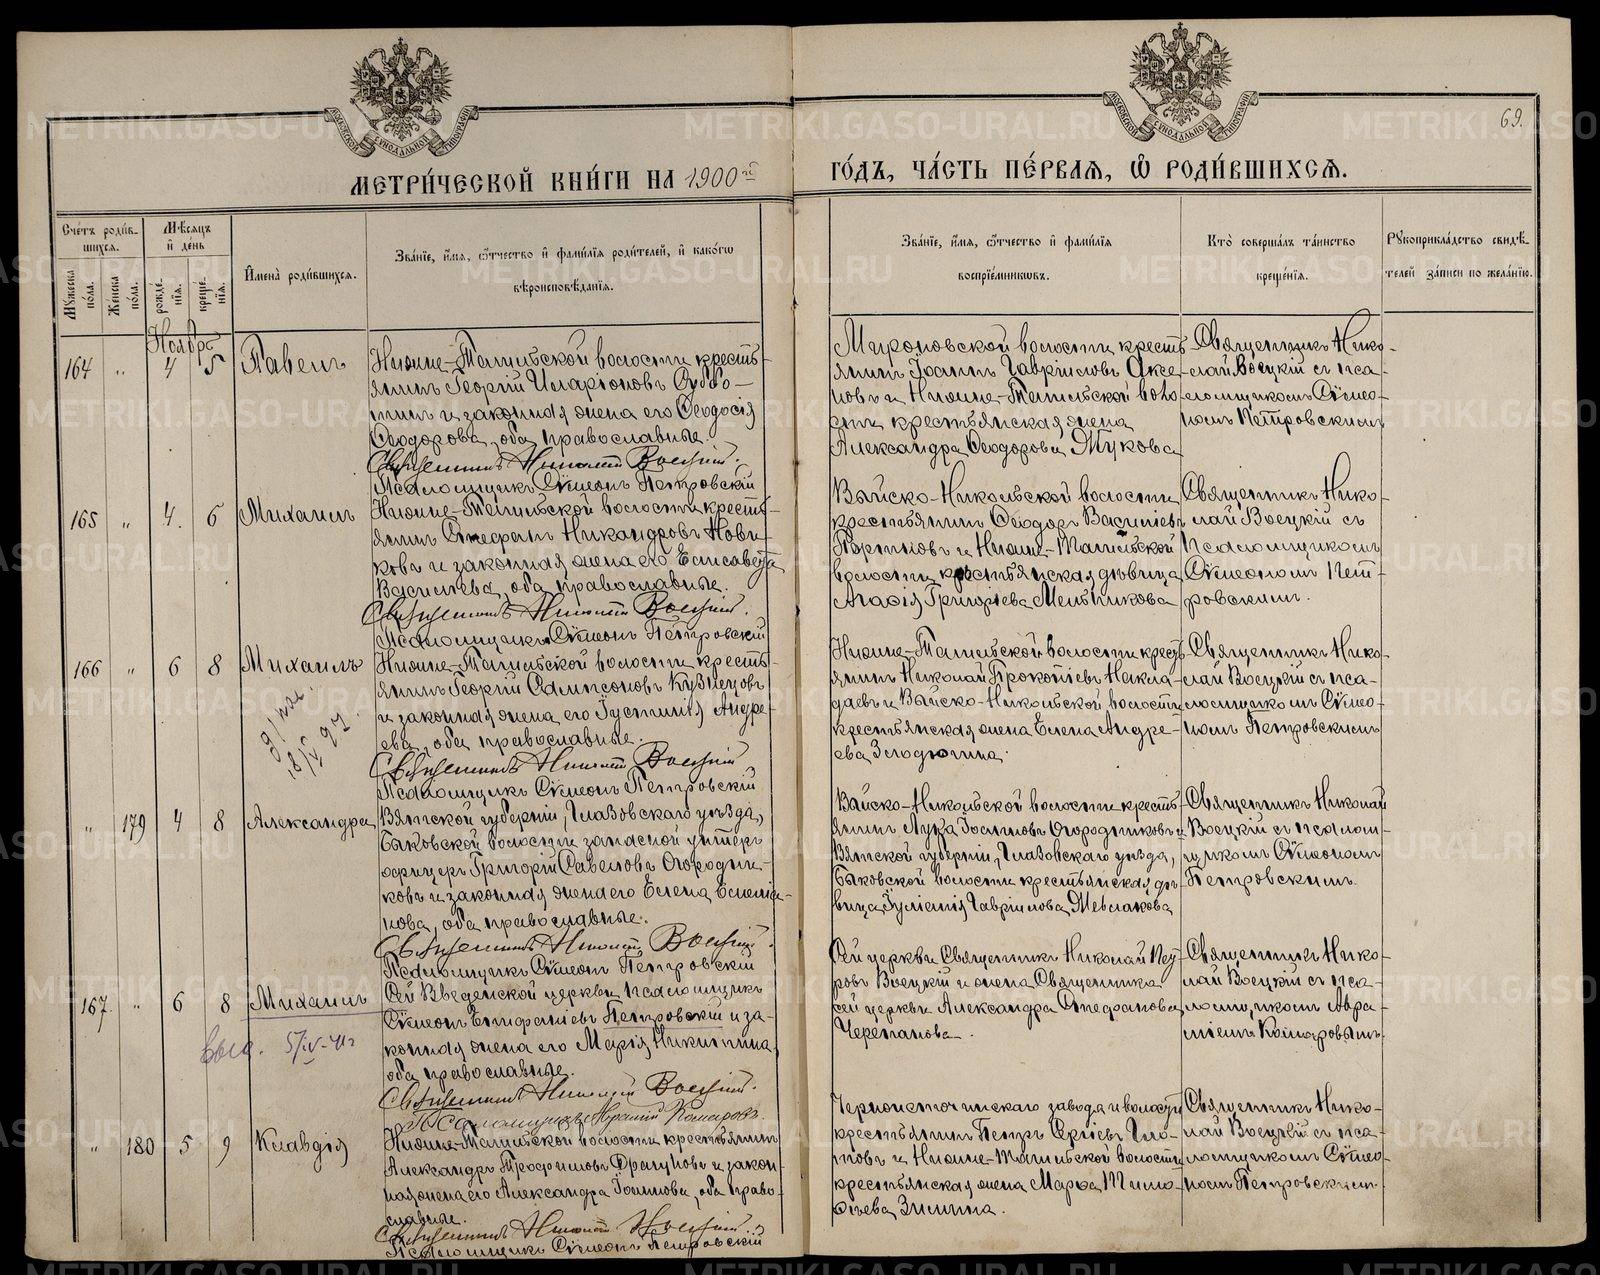 69.
МЕТРИ́ЧЕСКОЙ КНИ́ГИ НА 1900й ГО́ДЪ, ЧА́СТЬ ПЕ́РВАЯ, Ѿ РОДИ́ВШИХСЯ.
Сче́тъ роди́в-
шихся.
Му́жеска по́ла.
Же́нска по́ла.
Мѣ́сяцъ
и҆ де́нь
рожде́нїя.
креще́нїя.
И҆мена̀ роди́вшихся.
Зва́нїе, и҆́мя, ѻ҆́тчество и҆ фами́лїя роди́телей, и҆ како́гѡ
вѣроисповѣ́данїя.
Зва́нїе, и҆́мя, ѻ҆́тчество и҆ фами́лїя
воспрїе́мниковъ.
Кто̀ соверша́лъ та́инство
креще́нїя.
Рꙋкоприкла́дство свидѣ́-
телей за́писи по жела́нїю.
Ноябрь
164 " 4 5 Павелъ
Нижне-Тагильской волости кресть-
янинъ Георгій Иларіоновъ Суббо-
тинъ и законная жена его Ѳеодосія
Ѳеодорова, оба православные.
Священникъ Николай Воецкій.
Псаломщикъ Сѵмеонъ Петровскій
Мироновской волости кресть-
янинъ Іоаннъ Гавріиловъ Аксе-
новъ и Нижне-Тагильской воло-
сти крестьянская жена
Александра Ѳеодорова Жукова
Священникъ Нико-
лай Воецкій съ пса-
ломщикомъ Сѵмео-
номъ Петровскимъ
165 " 4. 6 Михаилъ
Нижне-Тагильской волости кресть-
янинъ Стефанъ Никандровъ Нови-
ковъ и законная жена его Елисавета
Васильева, оба православные.
Священникъ Николай Воецкій.
Псаломщикъ Сѵмеонъ Петровскій
Выйско-Никольской волости
крестьянинъ Ѳеодоръ Васильевъ
и Нижне-Тагильской
волости крестьянская дѣвица
Агаѳія Григорьева Мельникова
Священникъ Нико-
лай Воецкій съ
псаломщикомъ
Сѵмеономъ Пет-
ровскимъ.
166 " 6 8 Михаилъ
Нижне-Тагильской волости кресть-
янинъ Георгій Сампсоновъ Кузнецовъ
и законная жена его Іустинія Андре-
ева, оба православные.
Священникъ Николай Воецкій
Псаломщикъ Сѵмеонъ Петровскій
Нижне-Тагильской волости кресть-
янинъ Николай Прокопіевъ Накла-
даевъ и Выйско-Никольской волости
крестьянская жена Елена Андре-
ева
Священникъ Нико-
лай Воецкій съ пса-
ломщикомъ Сѵмео-
номъ Петровскимъ
" 179 4 8 Александра
Вятской губерніи, Глазовскаго уѣзда,
волости запасной унтеръ
офицеръ Григорій Савеловъ Огородни-
ковъ и законная жена его Елена Емелія-
нова, оба православные.
Священникъ Николай Воецкій.
Псаломщикъ Сѵмеонъ Петровскій
Выйско-Никольской волости кресть-
янинъ Лука Іоанновъ Огородниковъ и
Вятской губерніи, Глазовскаго уѣзда,
волости крестьянская дѣ-
вица Іуліанія Гавріилова
Священникъ Николай
Воецкій съ псалом-
щикомъ Сѵмеономъ
Петровскимъ.
167. " 6 8 Михаилъ
Сей Введенской церкви псаломщикъ
Сѵмеонъ Епифаніевъ Петровскій и за-
конная жена его Марія Никитина,
оба православные.
Священникъ Николай Воецкій.
Псаломщикъ Комаровъ
Сей церкви Священникъ Николай Пет-
ровъ Воецкій и жена Священника
сей церкви Александра Стефанова
Черепанова.
Священникъ Нико-
лай Воецкій съ пса-
ломщикомъ Авра-
міемъ Комаровымъ.
" 180 5 9 Клавдія
Нижне-Тагильской волости крестьянинъ
Александръ Трофимовъ Драгуновъ и закон-
ная жена его Александра Іоаннова, оба право-
славные.
Священникъ Николай Воецкій.
Псаломщикъ Сѵмеонъ Петровскій
Черноисточинскаго завода и волости
крестьянинъ Петръ Сергіевъ
и Нижне-Тагильской волости
крестьянская жена Марѳа Тимо-
ѳеева Зимина.
Священникъ Нико-
лай Воецкій съ пса-
ломщикомъ Сѵмео-
номъ Петровскимъ
METRIKI.GASO-URAL.RU